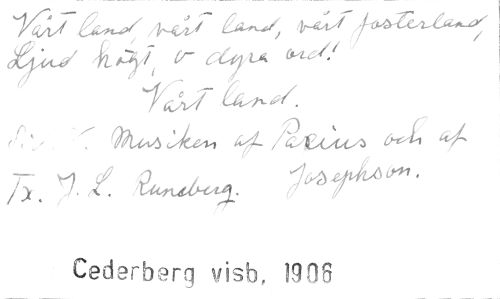 Vårt land, vårt land, vårt fosterland,
Ljud högt, o dyra ord!
Vårt land.
Musiken af Pacius och af
Josephson.
Tx. J. L. Runeberg.
Cederberg visb. 1906